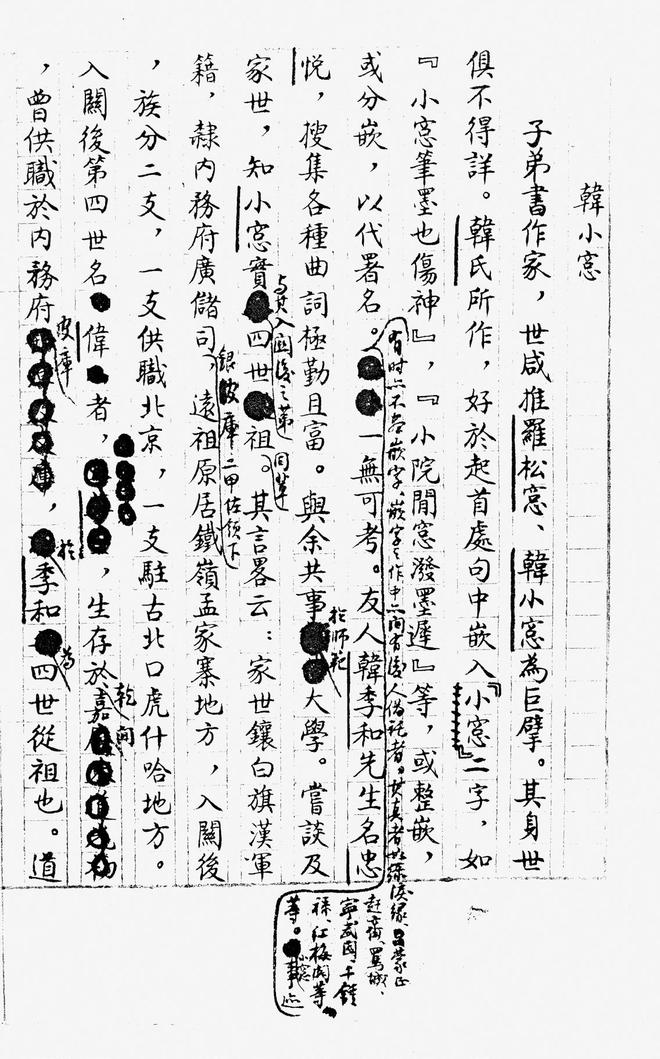 韓小窓
子弟書作家，世咸推羅松窓、韓小窓為巨擘。其身世
俱不得詳。韓氏所作，好於起首處句中嵌入『小窓』二字，如
『小窓筆墨也傷神』，『小院閒窓潑墨遲』等，或整嵌，
有時亦不嵌字，嵌字之作中亦間有後人偽託者。其真者如
等。
或分嵌，以代署名。一無可考。友人韓季和先生名忠
悦，搜集各種曲詞極勤且富。與余共事於師範大學。嘗談及
家世，知小窓實與其入關後之第四世祖同輩。其言畧云：家世鑲白旗漢軍
籍，隸内務府廣儲司銀皮庫二甲佐領下，遠祖原居鐵嶺孟家寨地方，入關後
，族分二支，一支供職北京，一支駐古北口虎什哈地方。
入關後第四世名偉者，，生存於乾嘉間
，曾供職於内務府皮庫，於季和為四世從祖也。道